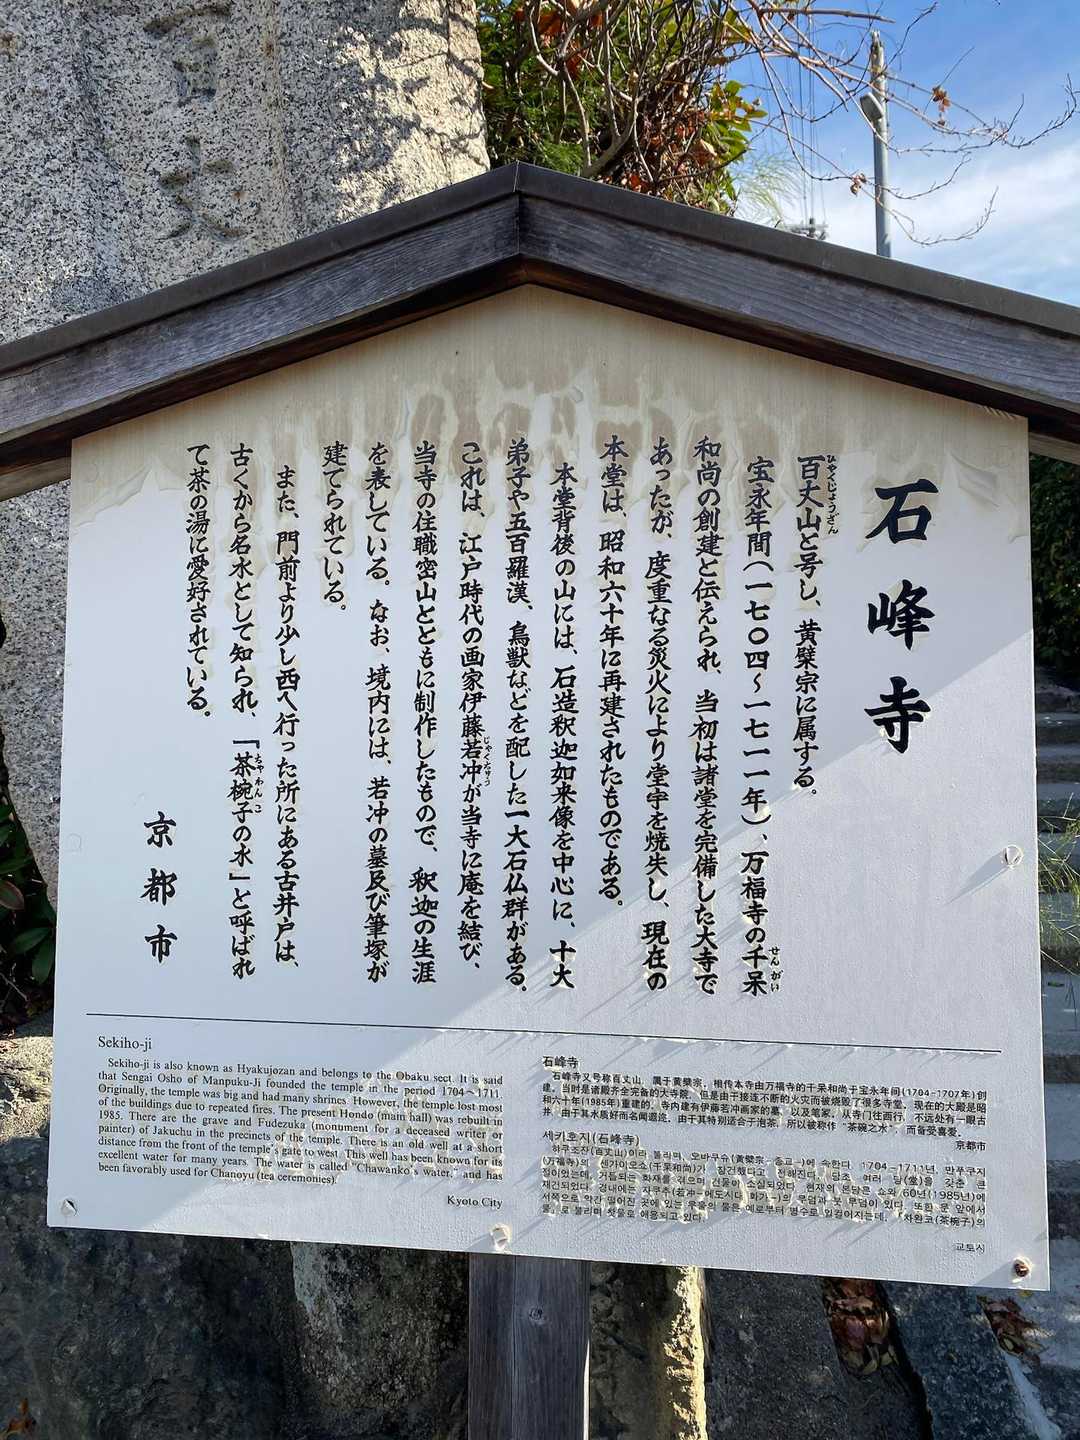 石峰寺
百丈山と号し、黄檗宗に属する。
宝永年間(一七〇四〜一七一一年)、万福寺の千呆
和尚の創建と伝えられ、当初は諸堂を完備した大寺で
あったが、度重なる災火により堂宇を焼失し、現在の
本堂は、昭和六十年に再建されたものである。
本堂背後の山には、石造釈迦如来像を中心に、十大
弟子や五百羅漢、鳥獣などを配した一大石仏群がある。
これは、江戸時代の画家伊藤若冲が当寺に庵を結び、
当寺の住職密山とともに制作したもので、釈迦の生涯
を表している。なお、境内には、若冲の墓及び筆塚が
建てられている。
また、門前より少し西へ行った所にある古井戸は、
古くから名水として知られ、「茶椀子の水」と呼ばれ
て茶の湯に愛好されている。
京都市
Sekiho-ji
Sekiho-ji is also known as Hyakujozan and belongs to the Obaku sect. It is said
that Sengai Osho of Manpuku-Ji founded the temple in the period 1704~1711.
Originally, the temple was big and had many shrines. However, the temple lost most
of the buildings due to repeated fires. The present Hondo (main hall) was rebuilt in
1985. There are the grave and Fudezuka (monument for a deceased writer or
painter) of Jakuchu in the precincts of the temple. There is an old well at a short
distance from the front of the temple gate to west. This well has been known for its
excellent water for many years. The water is called "Chawanko's water," and has
been favorably used for Chanoyu (tea ceremonies).
Kyoto City
石峰寺
石峰寺又号称百丈山，属于黄檗宗，相传本寺由万福寺的千呆和尚于宝永年间(1704-1707年)创
建。当时是诸殿齐全完备的大寺院，但是由于接连不断的火灾而被烧毁了很多寺堂，现在的大殿是昭
和六十年(1985年)重建的。寺内建有伊藤若冲画家的墓，以及笔冢。从寺门往西行，不远处有一眼古
井，由于其水质好而名闻遐迩，由于其特别适合于泡茶，所以被称作"茶碗之水"，而备受喜爱。
京都市
세키호지(石峰寺)
하쿠조잔(百丈山)이라 불리며, 오바쿠슈(黄檗宗-종교-)에 속한다. 1704-1711년, 만푸쿠지
(万福寺)의 센가이오쇼(千呆和尚)가 창건했다고 전해진다. 당초 여러 당(堂)을 갖춘 큰
절이었는데, 거듭되는 화재를 겪으며 건물이 소실되었다. 현재의 본당은 쇼와 60년(1985년)에
재건되었다. 경내에는 자쿠추(若冲-에도시대 화가-)의 무덤과 붓 무덤이 있다. 또한 문 앞에서
서쪽으로 약간 떨어진 곳에 있는 우물의 물은 예로부터 명수로 일컬어지는데, "차완코(茶椀子)의
물"로 불리며 찻물로 애용되고 있다.
교토시